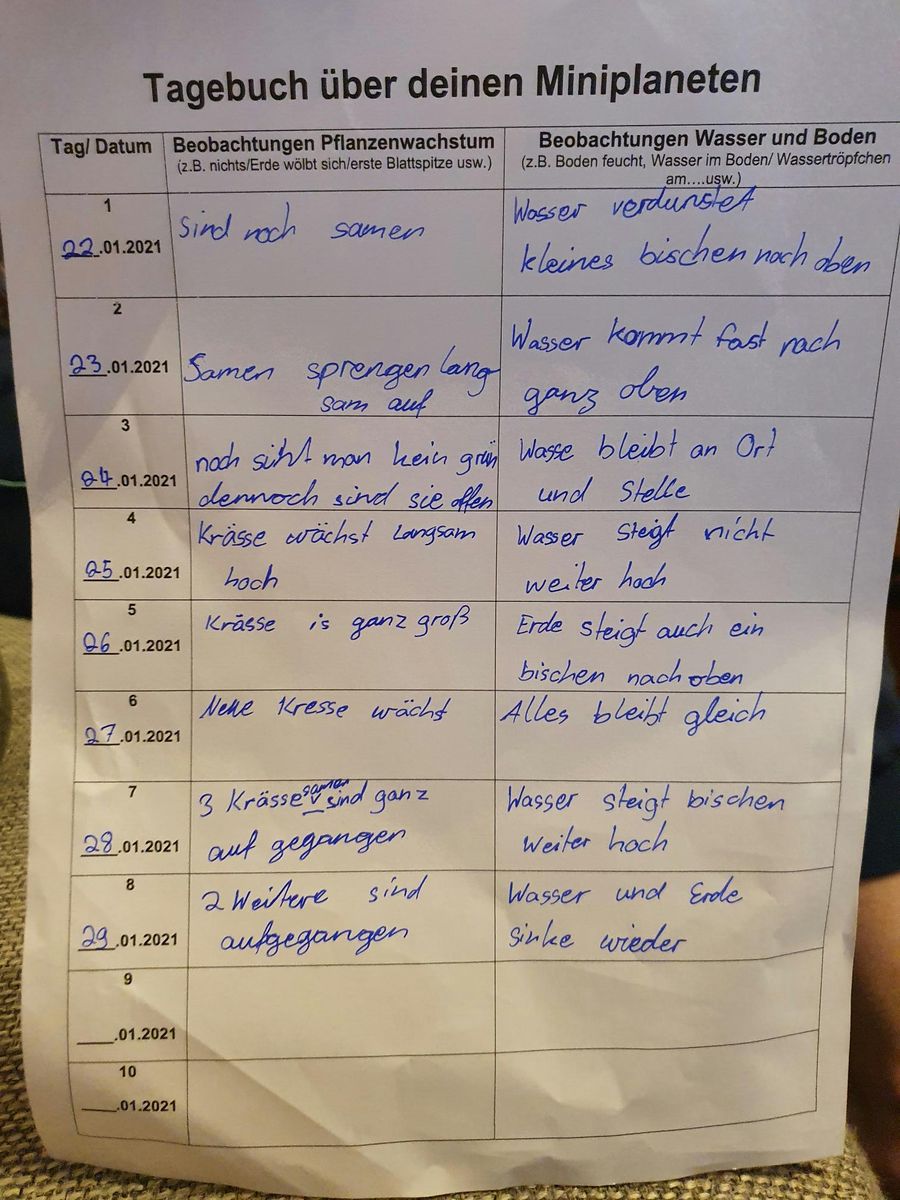 Tagebuch über deinen Miniplaneten
Tag/ Datum
Beobachtungen Pflanzenwachstum
(z.B. nichts/Erde wölbt sich/erste Blattspitze usw.)
Beobachtungen Wasser und Boden
(z.B. Boden feucht, Wasser im Boden/ Wassertröpfchen
am....usw.)
1
22.01.2021
Sind noch samen
Wasser verdunstet
kleines bischen nach oben
2
23.01.2021
Samen sprengen lang
sam auf
Wasser kommt fast nach
ganz oben
3
24.01.2021
noch siht man kein grün
dennoch sind sie offen
Wasse bleibt an Ort
und Stelle
4
25.01.2021
Krässe wächst Langsam
hoch
Wasser steigt nicht
weiter hoch
5
26.01.2021
Krässe is ganz groß
Erde steigt auch ein
bischen nach oben
6
27.01.2021
Neue Kresse wächst
Alles bleibt gleich
7
28.01.2021
3 Krässe samen sind ganz
auf gegangen
Wasser steigt bischen
weiter hoch
8
29.01.2021
2 Weitere sind
aufgegangen
Wasser und Erde
sinke wieder
9
___.01.2021
10
___.01.2021